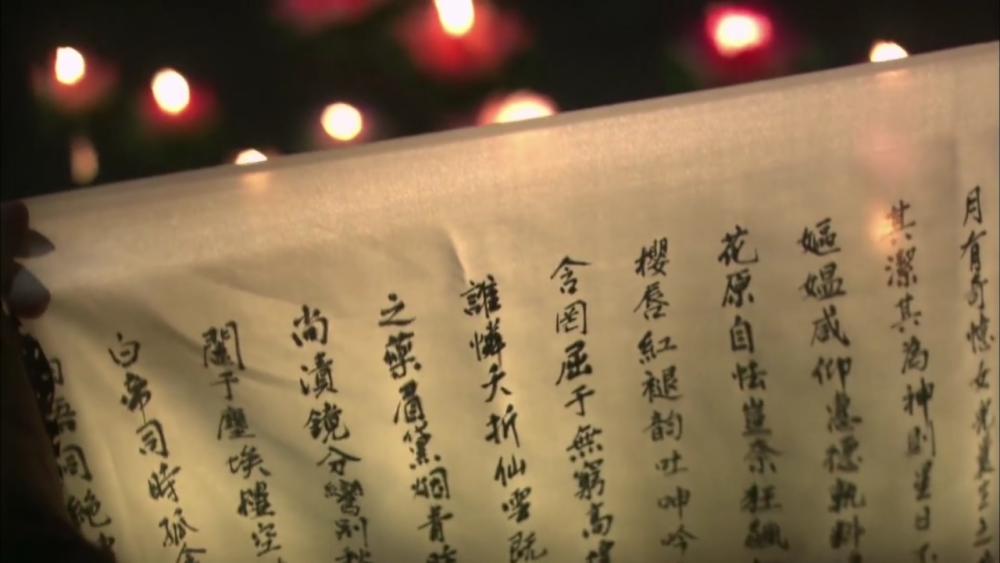 月有奇憶女兒曩生之
其潔其為神則星日不
嫗媼咸仰惠德孰料
花原自怯豈奈狂飆
櫻唇紅褪韵吐呻吟
含罔屈于無窮高標
誰憐夭折仙雲既
之藥眉黛烟青昔
尚漬鏡分鸞別愁
于塵埃樓空
白帝司時孤衾
同絶